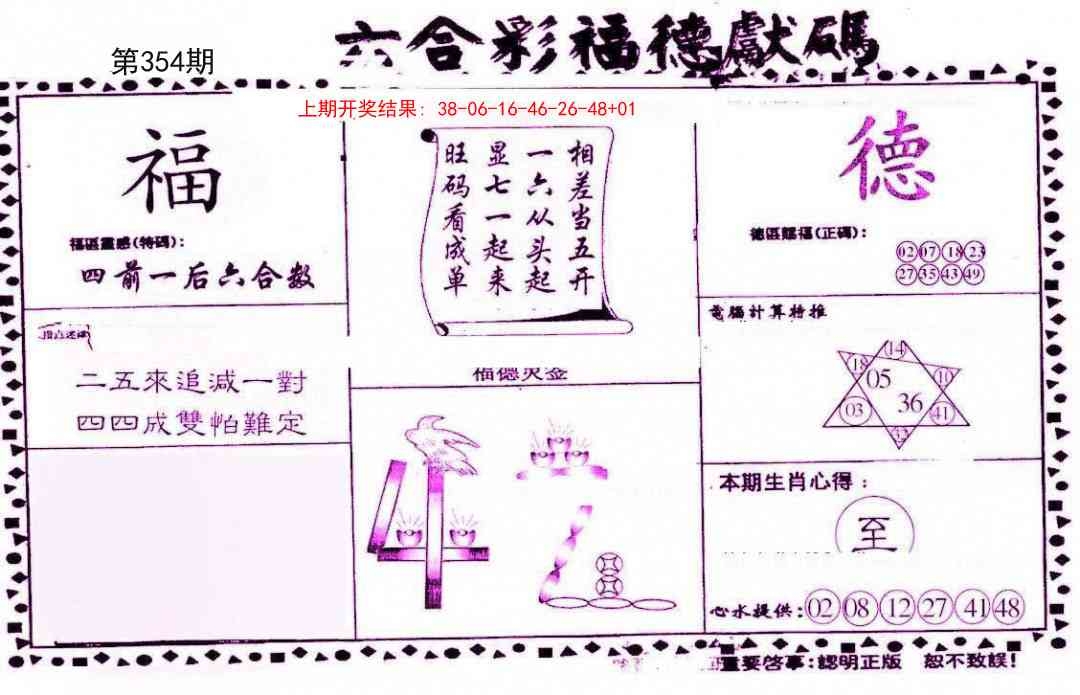 六合彩福德獻碼
第354期
上期开奖结果：38-06-16-46-26-48+01
福
福區靈感(特碼)：
四前一后六合数
二五來追减一對
四四成雙怕難定
相差当五开
一六从头起
显七一起来
旺码看成单
福德灵金
德
德區賜福(正碼)：
02 07 18 23
27 35 43 49
電腦計算特推
14
18 05 10
03 36 41
32
本期生肖心得：
至
心水提供：02 08 12 27 41 48
重要啓事：認明正版 恕不致誤！